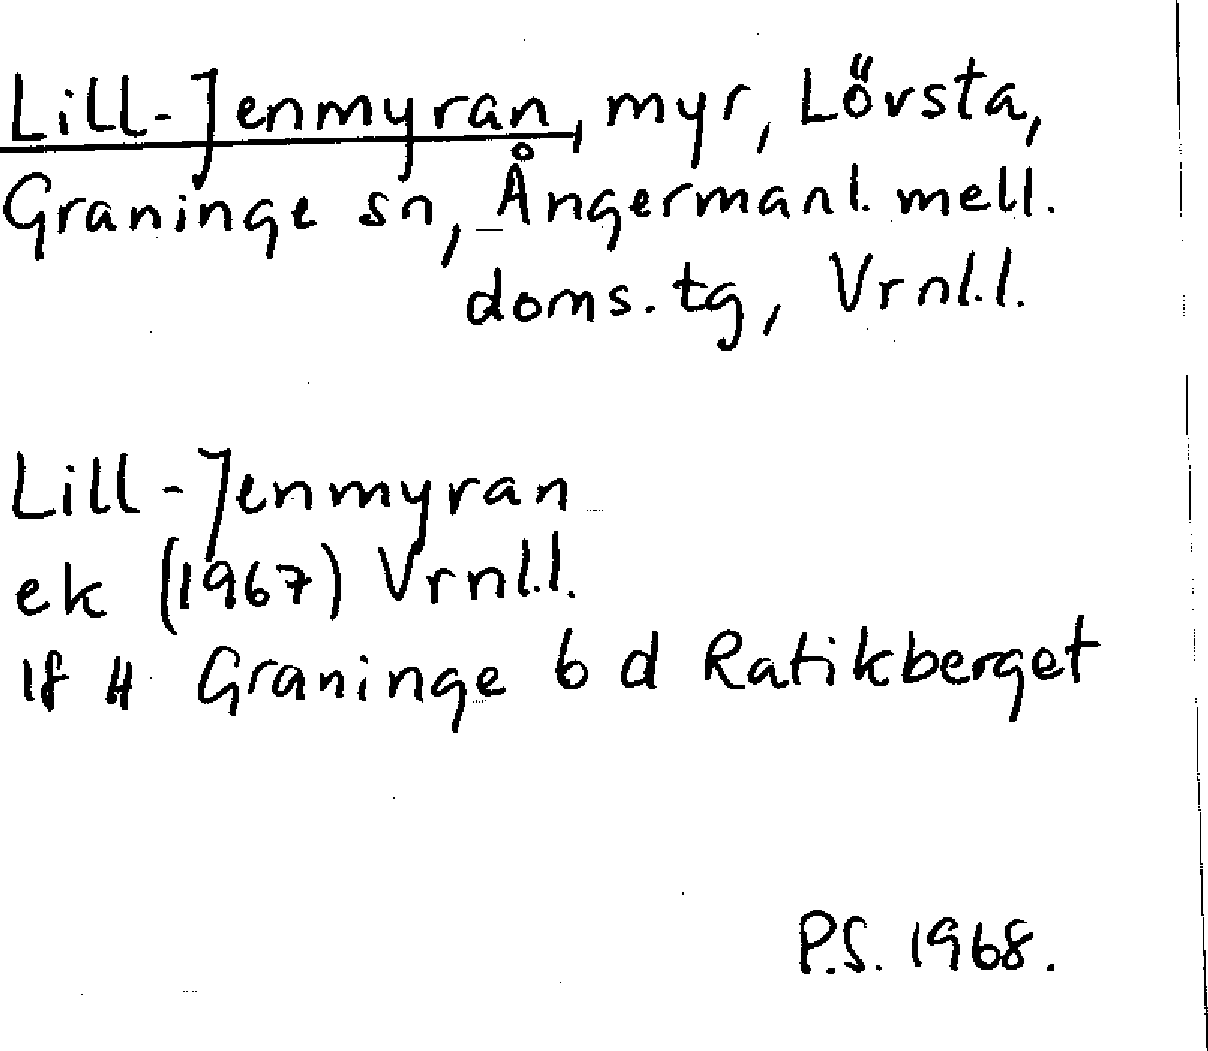 Lill-Jenmyran, myr, Lövsta,
Graninge sn, Ångermanl. mell.
doms. tg, Vrnl.l.
Lill-Jenmyran
ek (1967) Vrnl.l.
lf H Graninge b d Ratikberget
P.S. 1968.